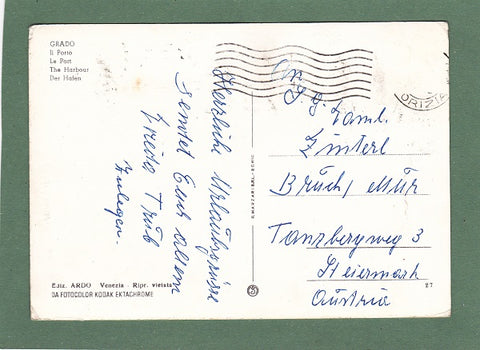 GRADO
Il Porto
Le Port
The Harbour
Der Hafen
Herzliche Urlaubsgrüsse
sendet Euch allen
Trude Trüb
An
Faml.
Zinterl
Bruck/Mur
Tanzbergweg 3
Steiermark
Austria
ORIZIA
Ediz. ARDO Venezia - Ripr. vietata
DA FOTOCOLOR KODAK EKTACHROME
27